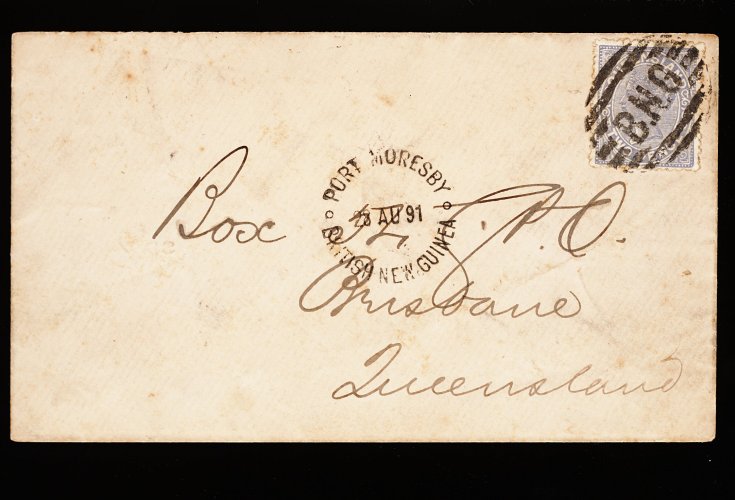 B.N.G
PORT MORESBY
28 AU 91
BRITISH NEW GUINEA
Box 52 P.O.
Brisbane
Queensland